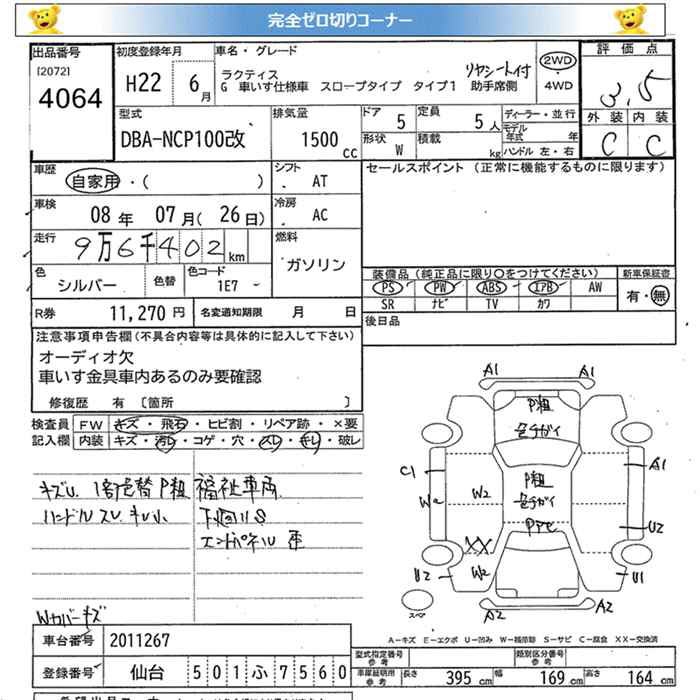 完全ゼロ切りコーナー
出品番号 初度登録年月 車名・グレード 評価点
[2072] 4064 H22 6月 ラクティス リヤシート付 2WD 3.5
G 車いす仕様車 スロープタイプ タイプ1 助手席側 4WD
型式 排気量 ドア 5 定員 5人 ディーラー・並行 外装 内装
DBA-NCP100改 1500cc 形状 W 積載 kg モデル年式 年 C C
ハンドル 左・右
車歴 シフト セールスポイント (正常に機能するものに限ります)
自家用・( ) AT
車検 冷房
08年 07月(26日) AC
走行 9万6千402km 燃料
ガソリン
色 シルバー 色替 色コード 1E7 装備品(純正品に限り○をつけてください) 新車保証書
PS PW ABS エアB AW 有・無
R券 11,270円 名変通知期限 月 日 SR ナビ TV カワ
後日品
注意事項申告欄(不具合内容等は具体的に記入して下さい)
オーディオ欠
車いす金具車内あるのみ要確認
修復歴 有 〔箇所 〕
検査員 FW キズ・飛石・ヒビ割・リペア跡・×要
記入欄 内装 キズ・汚レ・コゲ・穴・スレ・キレ・破レ
キズU. 1部色替 P粗 福祉車両
ハンドルスレ キレ小 下回りS
エンドパネル
Wカバーキズ
A1 A1
P粗
色チガイ
C1 A1
W2 P粗 W2
色チガイ
PPセ U2
XX
U2 W2 U1
スペア A2 A2
A-キズ E-エクボ U-凹み W-補修跡 S-サビ C-腐食 XX-交換済
車台番号 2011267
型式指定番号 参考 類別区分番号 参考
登録番号 仙台 501ふ7560
車庫証明用 参考 長さ 395cm 幅 169cm 高さ 164cm